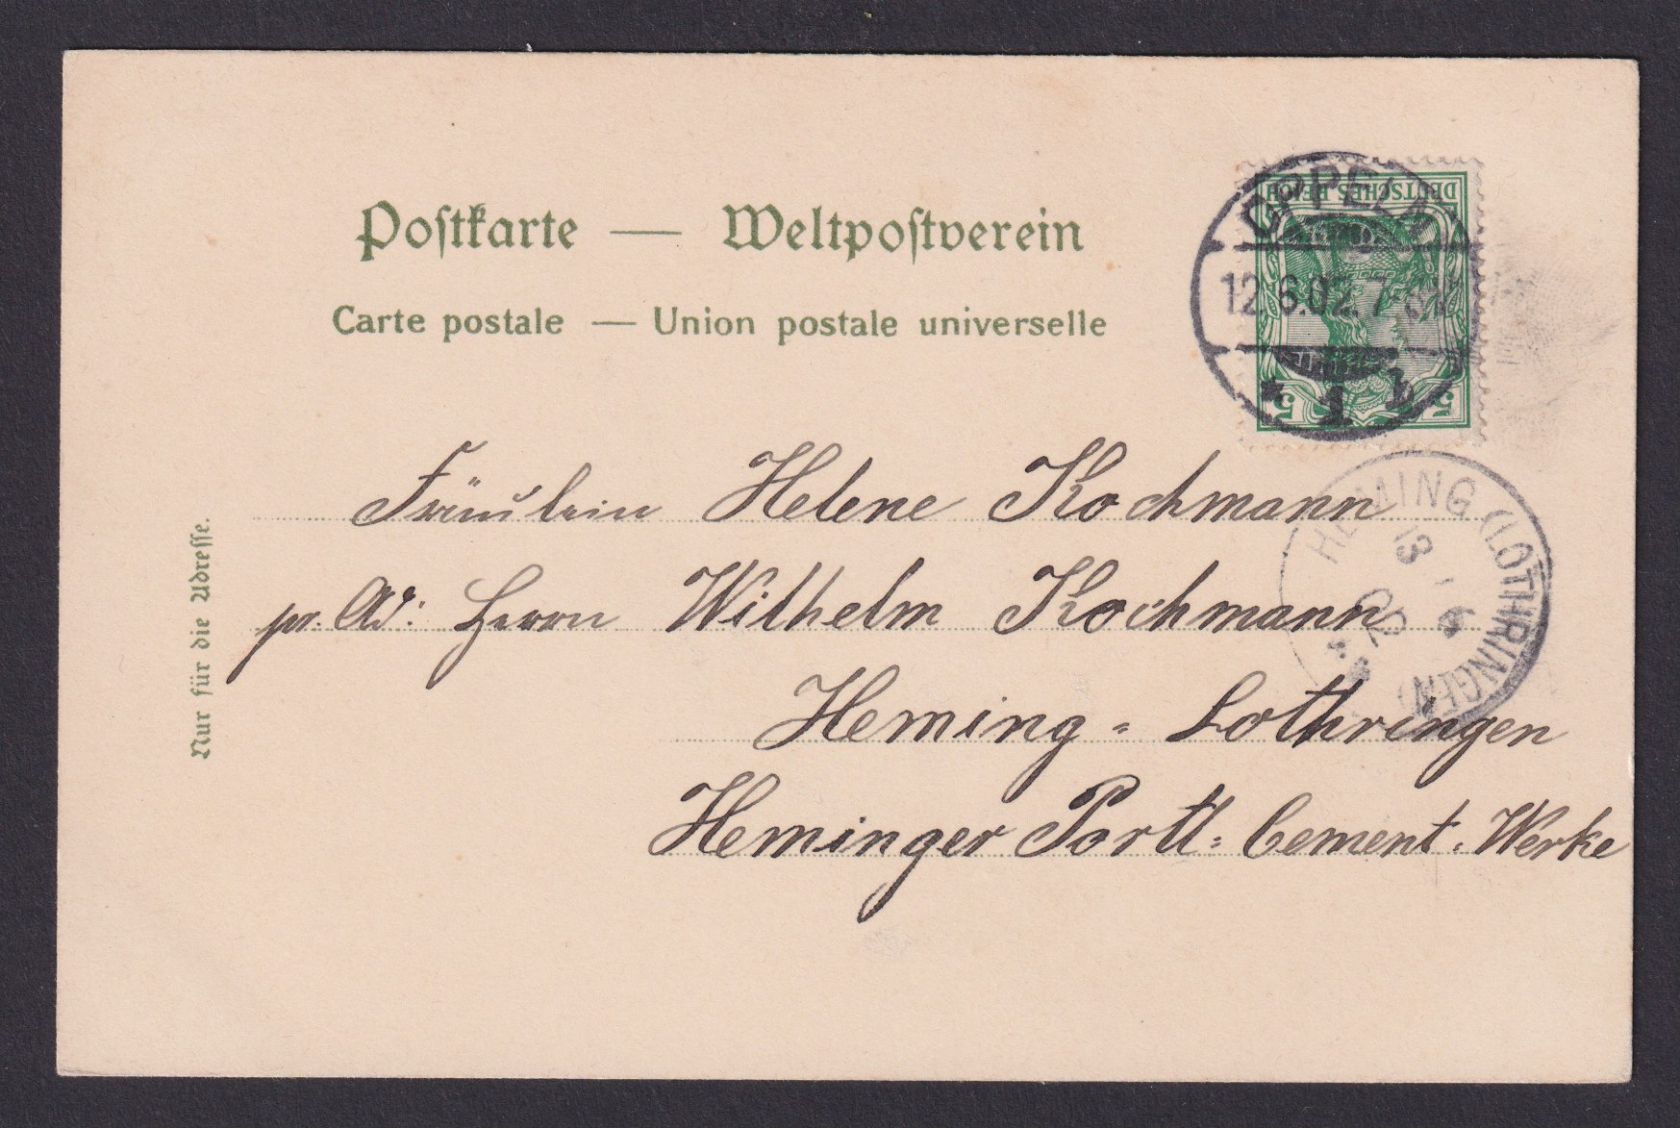 Postkarte — Weltpostverein
Carte postale — Union postale universelle
DEUTSCHES REICH
5 5
OPPELN
12.6.02. 7
* 1 b
HEMING (LOTHRINGEN)
13 6
02
Nur für die Adresse.
Fräulein Helene Kochmann
pr. Ad: Herrn Wilhelm Kochmann
Heming = Lothringen
Heminger Portl= Cement. Werke